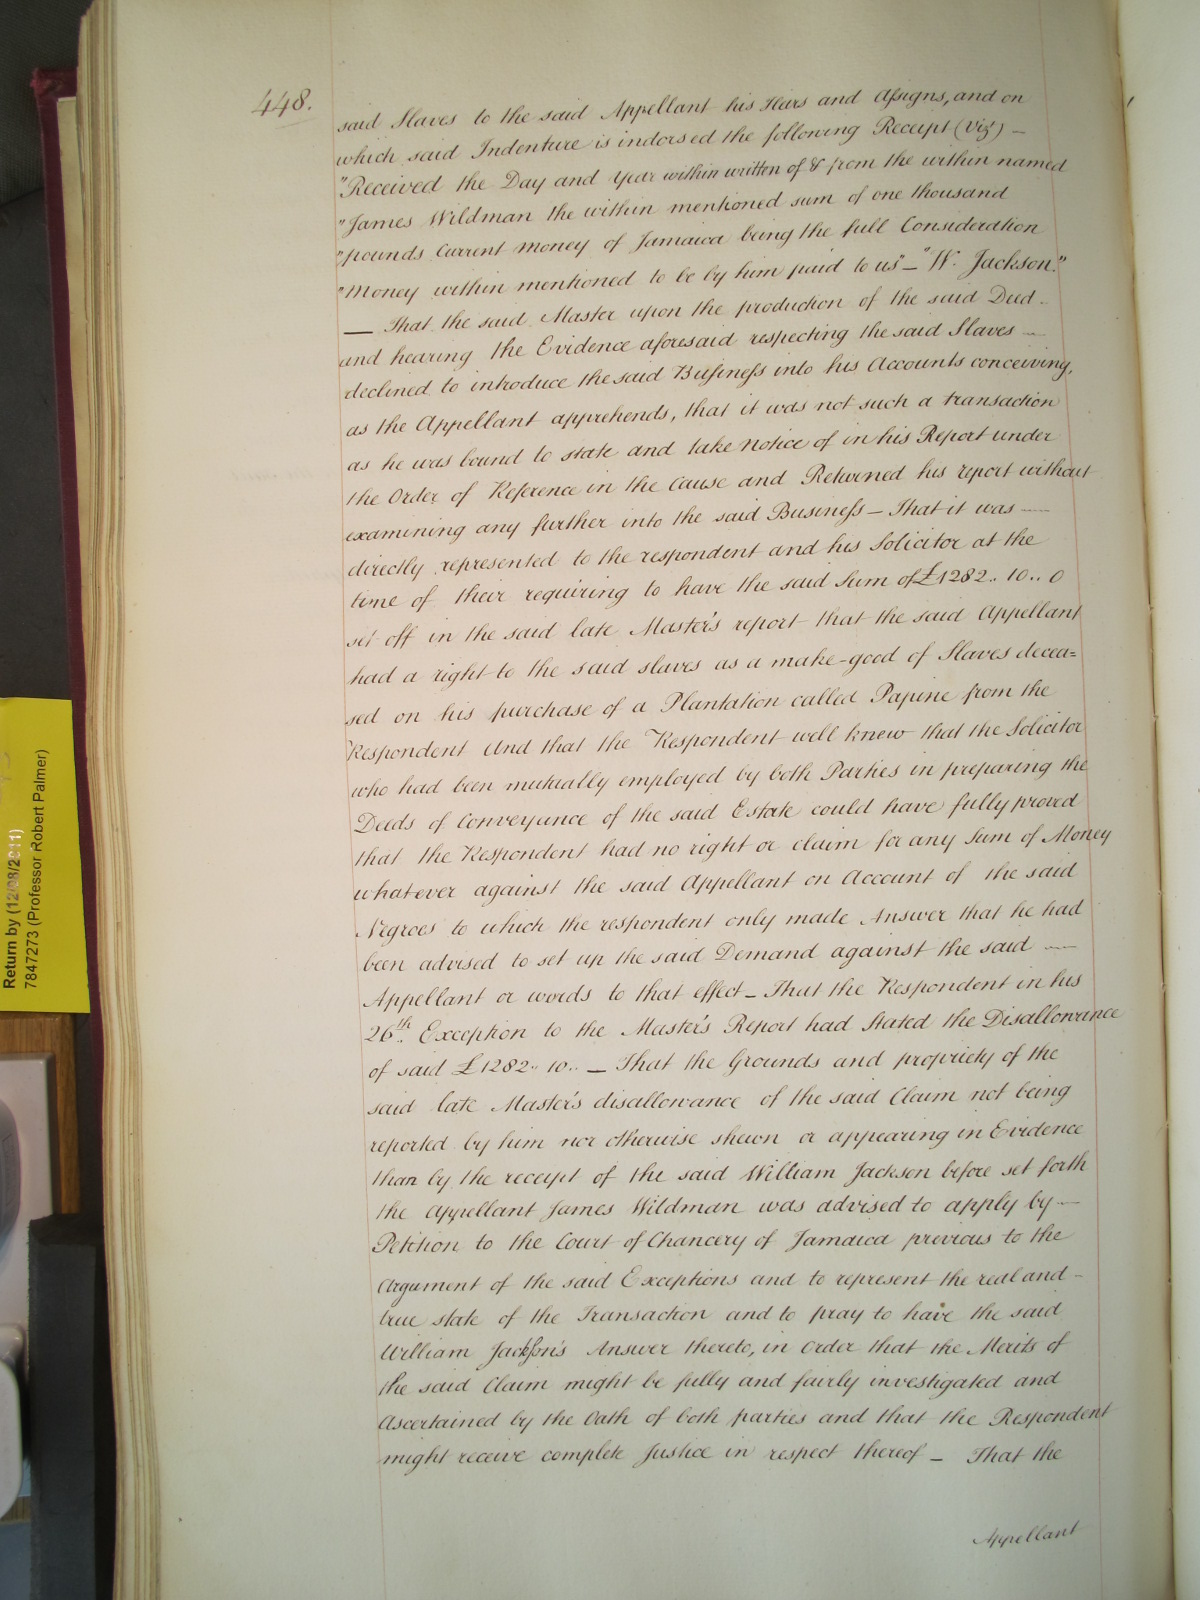 448.
said Slaves to the said Appellant his Heirs and Assigns, and on
which said Indenture is indorsed the following Receipt (viz.t) —
"Received the Day and year within written of & from the within named
"James Wildman the within mentioned sum of one thousand
"pounds Current money of Jamaica being the full Consideration
"Money within mentioned to be by him paid to us" — "W. Jackson."
— That the said Master upon the production of the said Deed..
and hearing the Evidence aforesaid respecting the said Slaves —
declined to introduce the said Business into his Accounts conceiving,
as the Appellant apprehends, that it was not such a transaction
as he was bound to state and take notice of in his Report under
the Order of Reference in the Cause and Returned his report without
examining any further into the said Business — That it was —
directly represented to the respondent and his Solicitor at the
time of their requiring to have the said Sum of £1282.. 10.. 0
set off in the said late Master's report that the said Appellant
had a right to the said slaves as a make-good of Slaves decea=
sed on his purchase of a Plantation called Papine from the
Respondent And that the Respondent well knew that the Solicitor
who had been mutually employed by both Parties in preparing the
Deeds of Conveyance of the said Estate could have fully proved
that the Respondent had no right or claim for any Sum of Money
whatever against the said Appellant on Account of the said
Negroes to which the respondent only made Answer that he had
been advised to set up the said Demand against the said —
Appellant or words to that effect — That the Respondent in his
26th. Exception to the Master's Report had Stated the Disallowance
of said £1282.. 10.. — That the Grounds and propriety of the
said late Master's disallowance of the said Claim not being
reported by him nor otherwise shewn or appearing in Evidence
than by the receipt of the said William Jackson before set forth
the Appellant James Wildman was advised to apply by —
Petition to the Court of Chancery of Jamaica previous to the
Argument of the said Exceptions and to represent the real and —
true state of the Transaction and to pray to have the said
William Jackson's Answer thereto, in Order that the Merits of
the said Claim might be fully and fairly investigated and
Ascertained by the Oath of both parties and that the Respondent
might receive complete Justice in respect thereof — That the
Appellant
Return by (12/08/2011)
7847273 (Professor Robert Palmer)